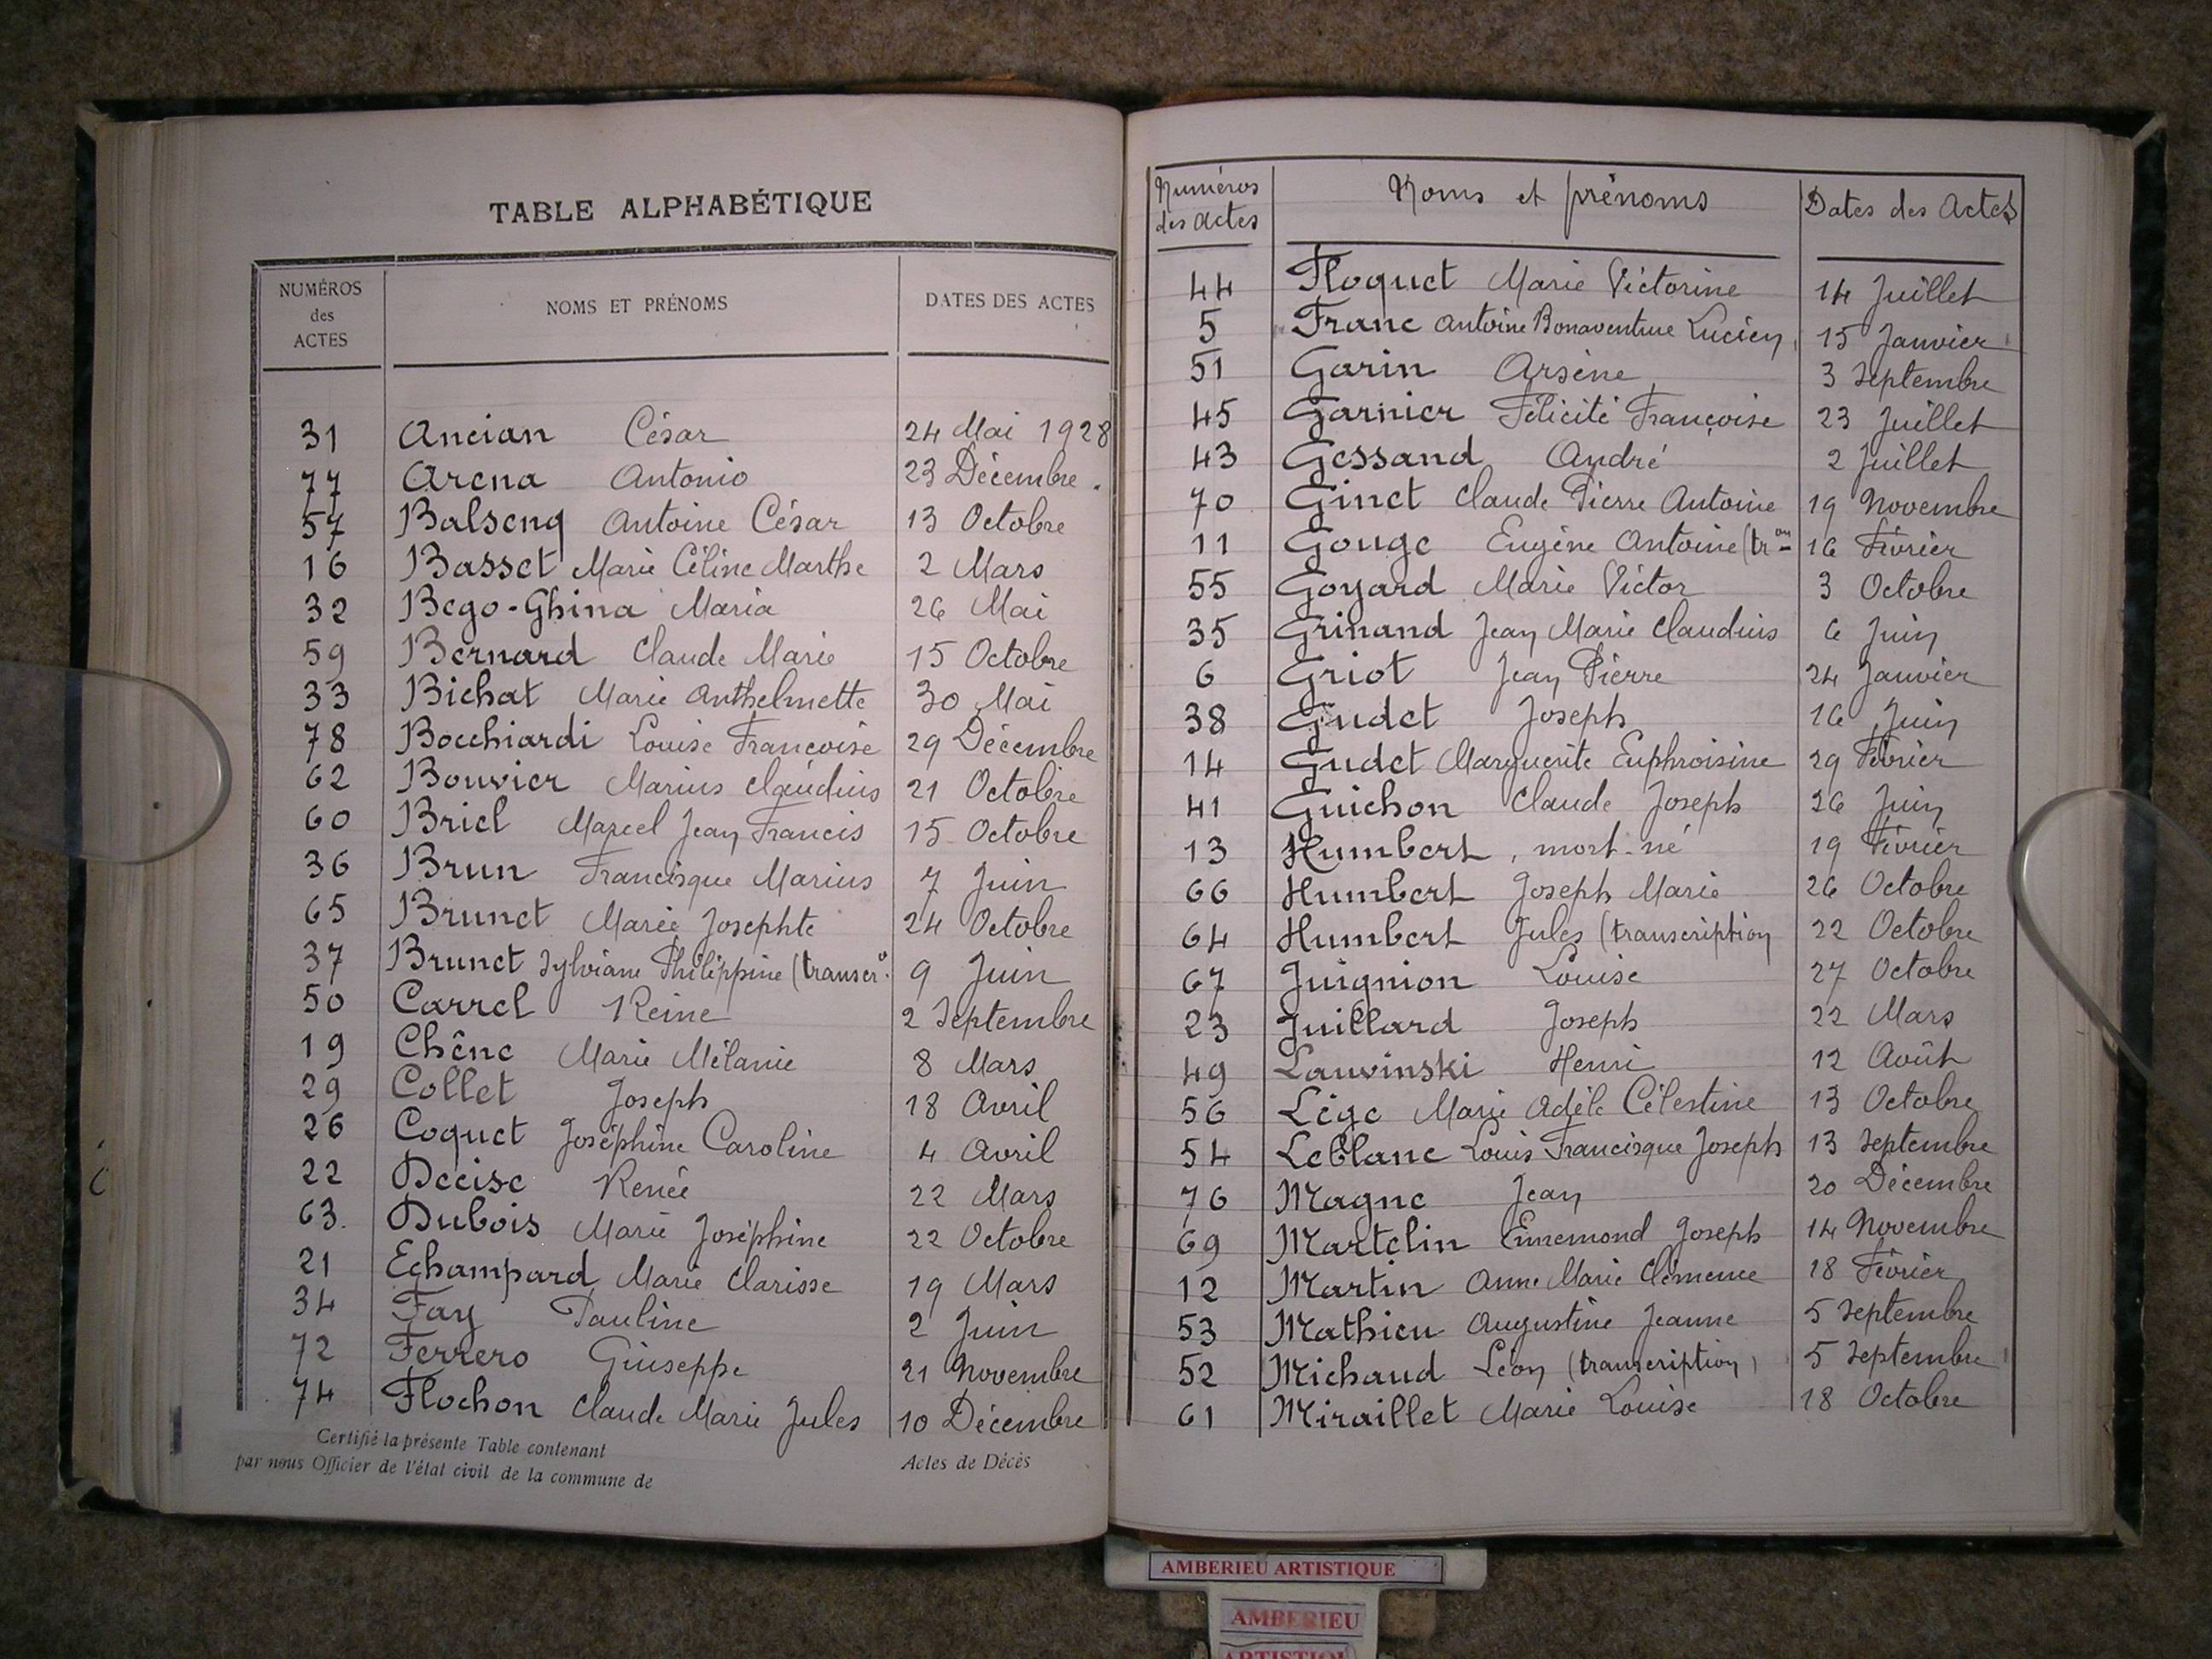 TABLE ALPHABÉTIQUE
NUMÉROS des ACTES NOMS ET PRÉNOMS DATES DES ACTES
31 Ancian César 24 Mai 1928
77 Arena Antonio 23 Décembre.
57 Balseng Antoine César 13 Octobre
16 Basset Marie Céline Marthe 2 Mars
32 Bego-Ghina Maria 26 Mai
59 Bernard Claude Marie 15 Octobre
33 Bichat Marie Anthelmette 30 Mai
78 Bocchiardi Louise Françoise 29 Décembre
62 Bouvier Marius Claudius 21 Octobre
60 Briel Marcel Jean Francis 15 Octobre
36 Brun Francisque Marius 7 Juin
65 Brunet Marie Josephte 24 Octobre
37 Brunet Sylviane Philippine (transcr°. 9 Juin
50 Carrel Reine 2 Septembre
19 Chêne Marie Mélanie 8 Mars
29 Collet Joseph 18 Avril
26 Coquet Joséphine Caroline 4 Avril
22 Decise Renée 22 Mars
63. Dubois Marie Joséphine 22 Octobre
21 Echampard Marie Clarisse 19 Mars
34 Fay Pauline 2 Juin
72 Ferrero Giuseppe 21 Novembre
74 Flochon Claude Marie Jules 10 Décembre
Certifié la présente Table contenant Actes de Décès
par nous Officier de l'état civil de la commune de
Numéros des actes Noms et prénoms Dates des Actes
44 Floquet Marie Victorine 14 Juillet
5 Franc Antoine Bonaventure Lucien 15 Janvier
51 Garin Arsène 3 Septembre
45 Garnier Félicité Françoise 23 Juillet
43 Gessand André 2 Juillet
70 Ginet Claude Pierre Antoine 19 Novembre
11 Gouge Eugène Antoine (tr on 16 Février
55 Goyard Marie Victor 3 Octobre
35 Grinand Jean Marie Claudius 6 Juin
6 Griot Jean Pierre 24 Janvier
38 Gudet Joseph 16 Juin
14 Gudet Marguerite Euphroisine 29 Février
41 Guichon Claude Joseph 26 Juin
13 Humbert, mort-né 19 Février
66 Humbert Joseph Marie 26 Octobre
64 Humbert Jules (transcription 22 Octobre
67 Juignion Louise 27 Octobre
23 Juillard Joseph 22 Mars
49 Lauvinski Henri 12 Août
56 Lége Marie Adèle Célestine 13 Octobre
54 Leblanc Louis Francisque Joseph 13 Septembre
76 Magne Jean 20 Décembre
69 Martelin Ennemond Joseph 14 Novembre
12 Martin Anne Marie Clémence 18 Février
53 Mathieu Augustine Jeanne 5 Septembre
52 Michaud Léon (transcription) 5 Septembre
61 Miraillet Marie Louise 18 Octobre
AMBERIEU ARTISTIQUE
AMBERIEU
ARTISTIQUE